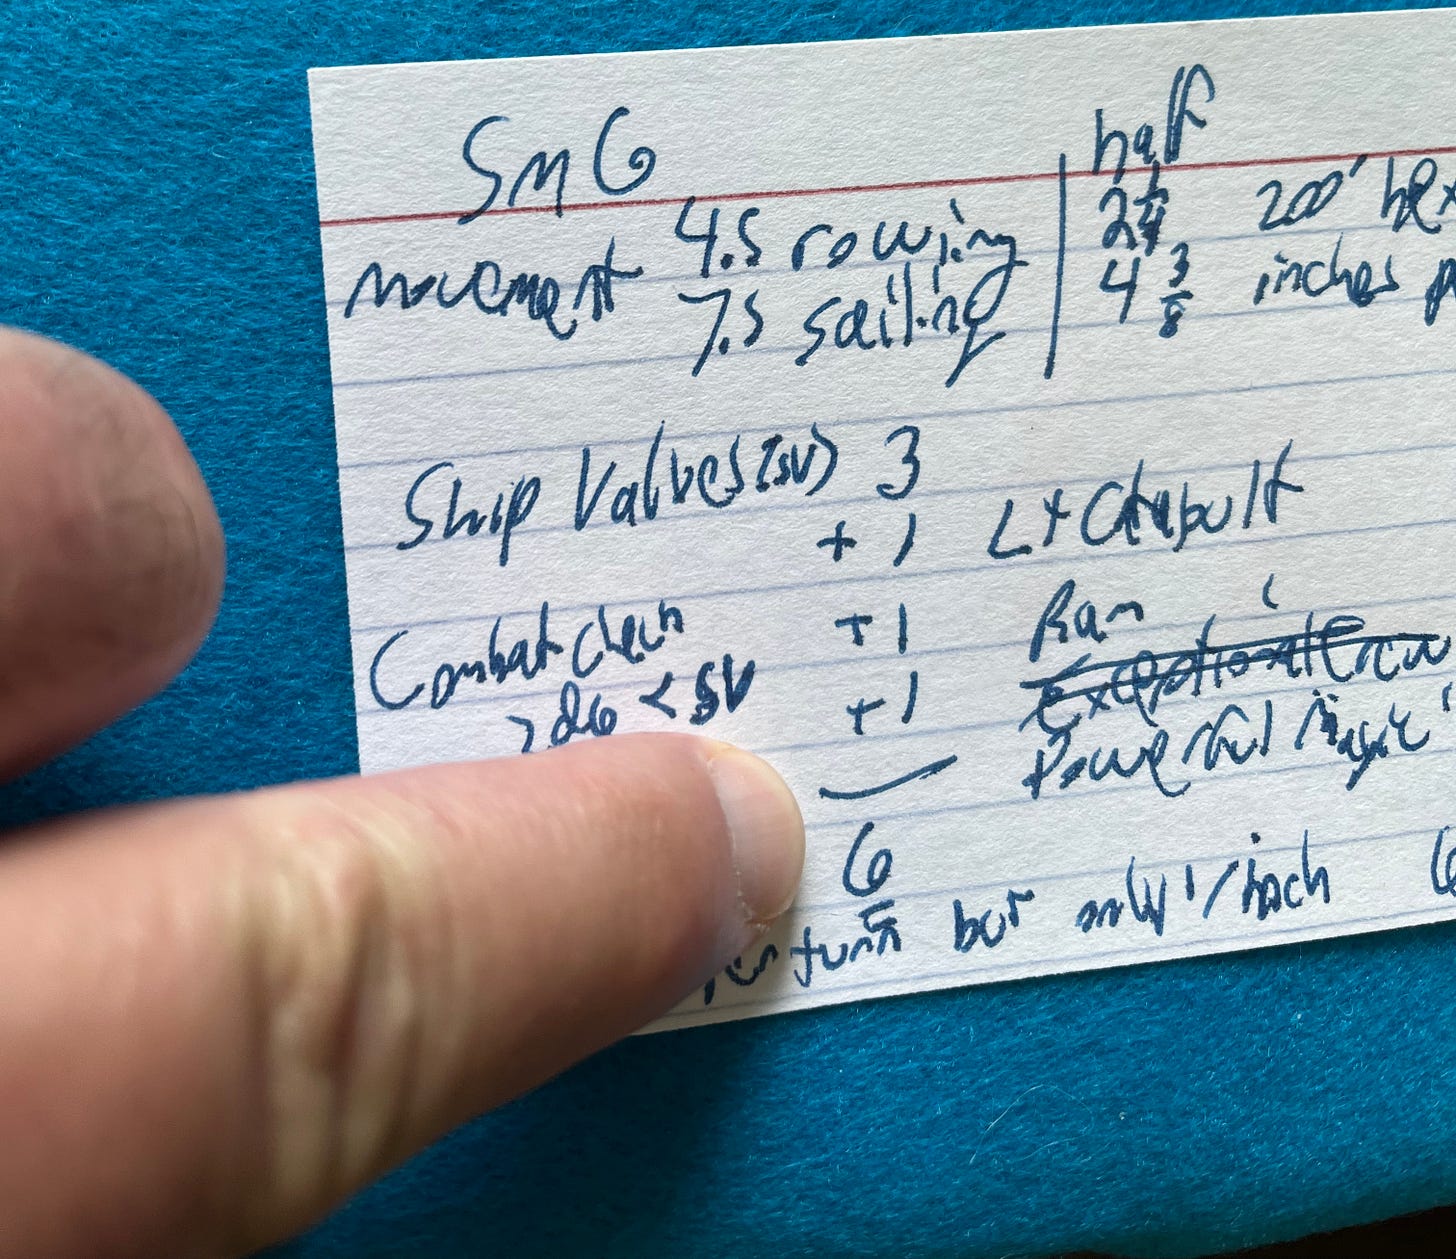 SmG
half
movement 4.5 rowing 2 1/4 200' hex
7.5 sailing 4 3/8 inches
Ship Values (SV) 3
+1 Lt Catapult
Combat check +1 Ram
2d6 < SV +1 Exceptional Crew
Powerful Magic
6
turn but only 1/hach 6